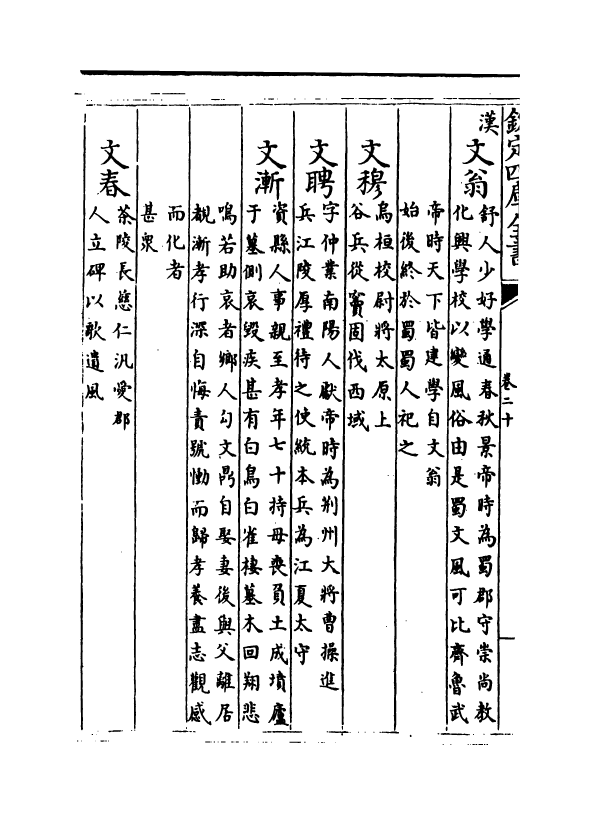 欽定四庫全書
卷二十
漢
文翁
舒人少好學通春秋景帝時為蜀郡守崇尚教
化興學校以變風俗由是蜀文風可比齊魯武
帝時天下皆建學自文翁
始後終於蜀蜀人祀之
文穆
烏桓校尉將太原上
谷兵從竇固伐西域
文聘
字仲業南陽人獻帝時為荆州大將曹操進
兵江陵厚禮待之使統本兵為江夏太守
文漸
資縣人事親至孝年七十持母喪負土成墳廬
于墓側哀毀疾甚有白烏白雀棲墓木回翔悲
鳴若助哀者鄉人勾文鼎自娶妻後與父離居
覩漸孝行深自悔責號慟而歸孝養盡志觀感
而化者
甚衆
文春
茶陵長慈仁汎愛郡
人立碑以歌遺風